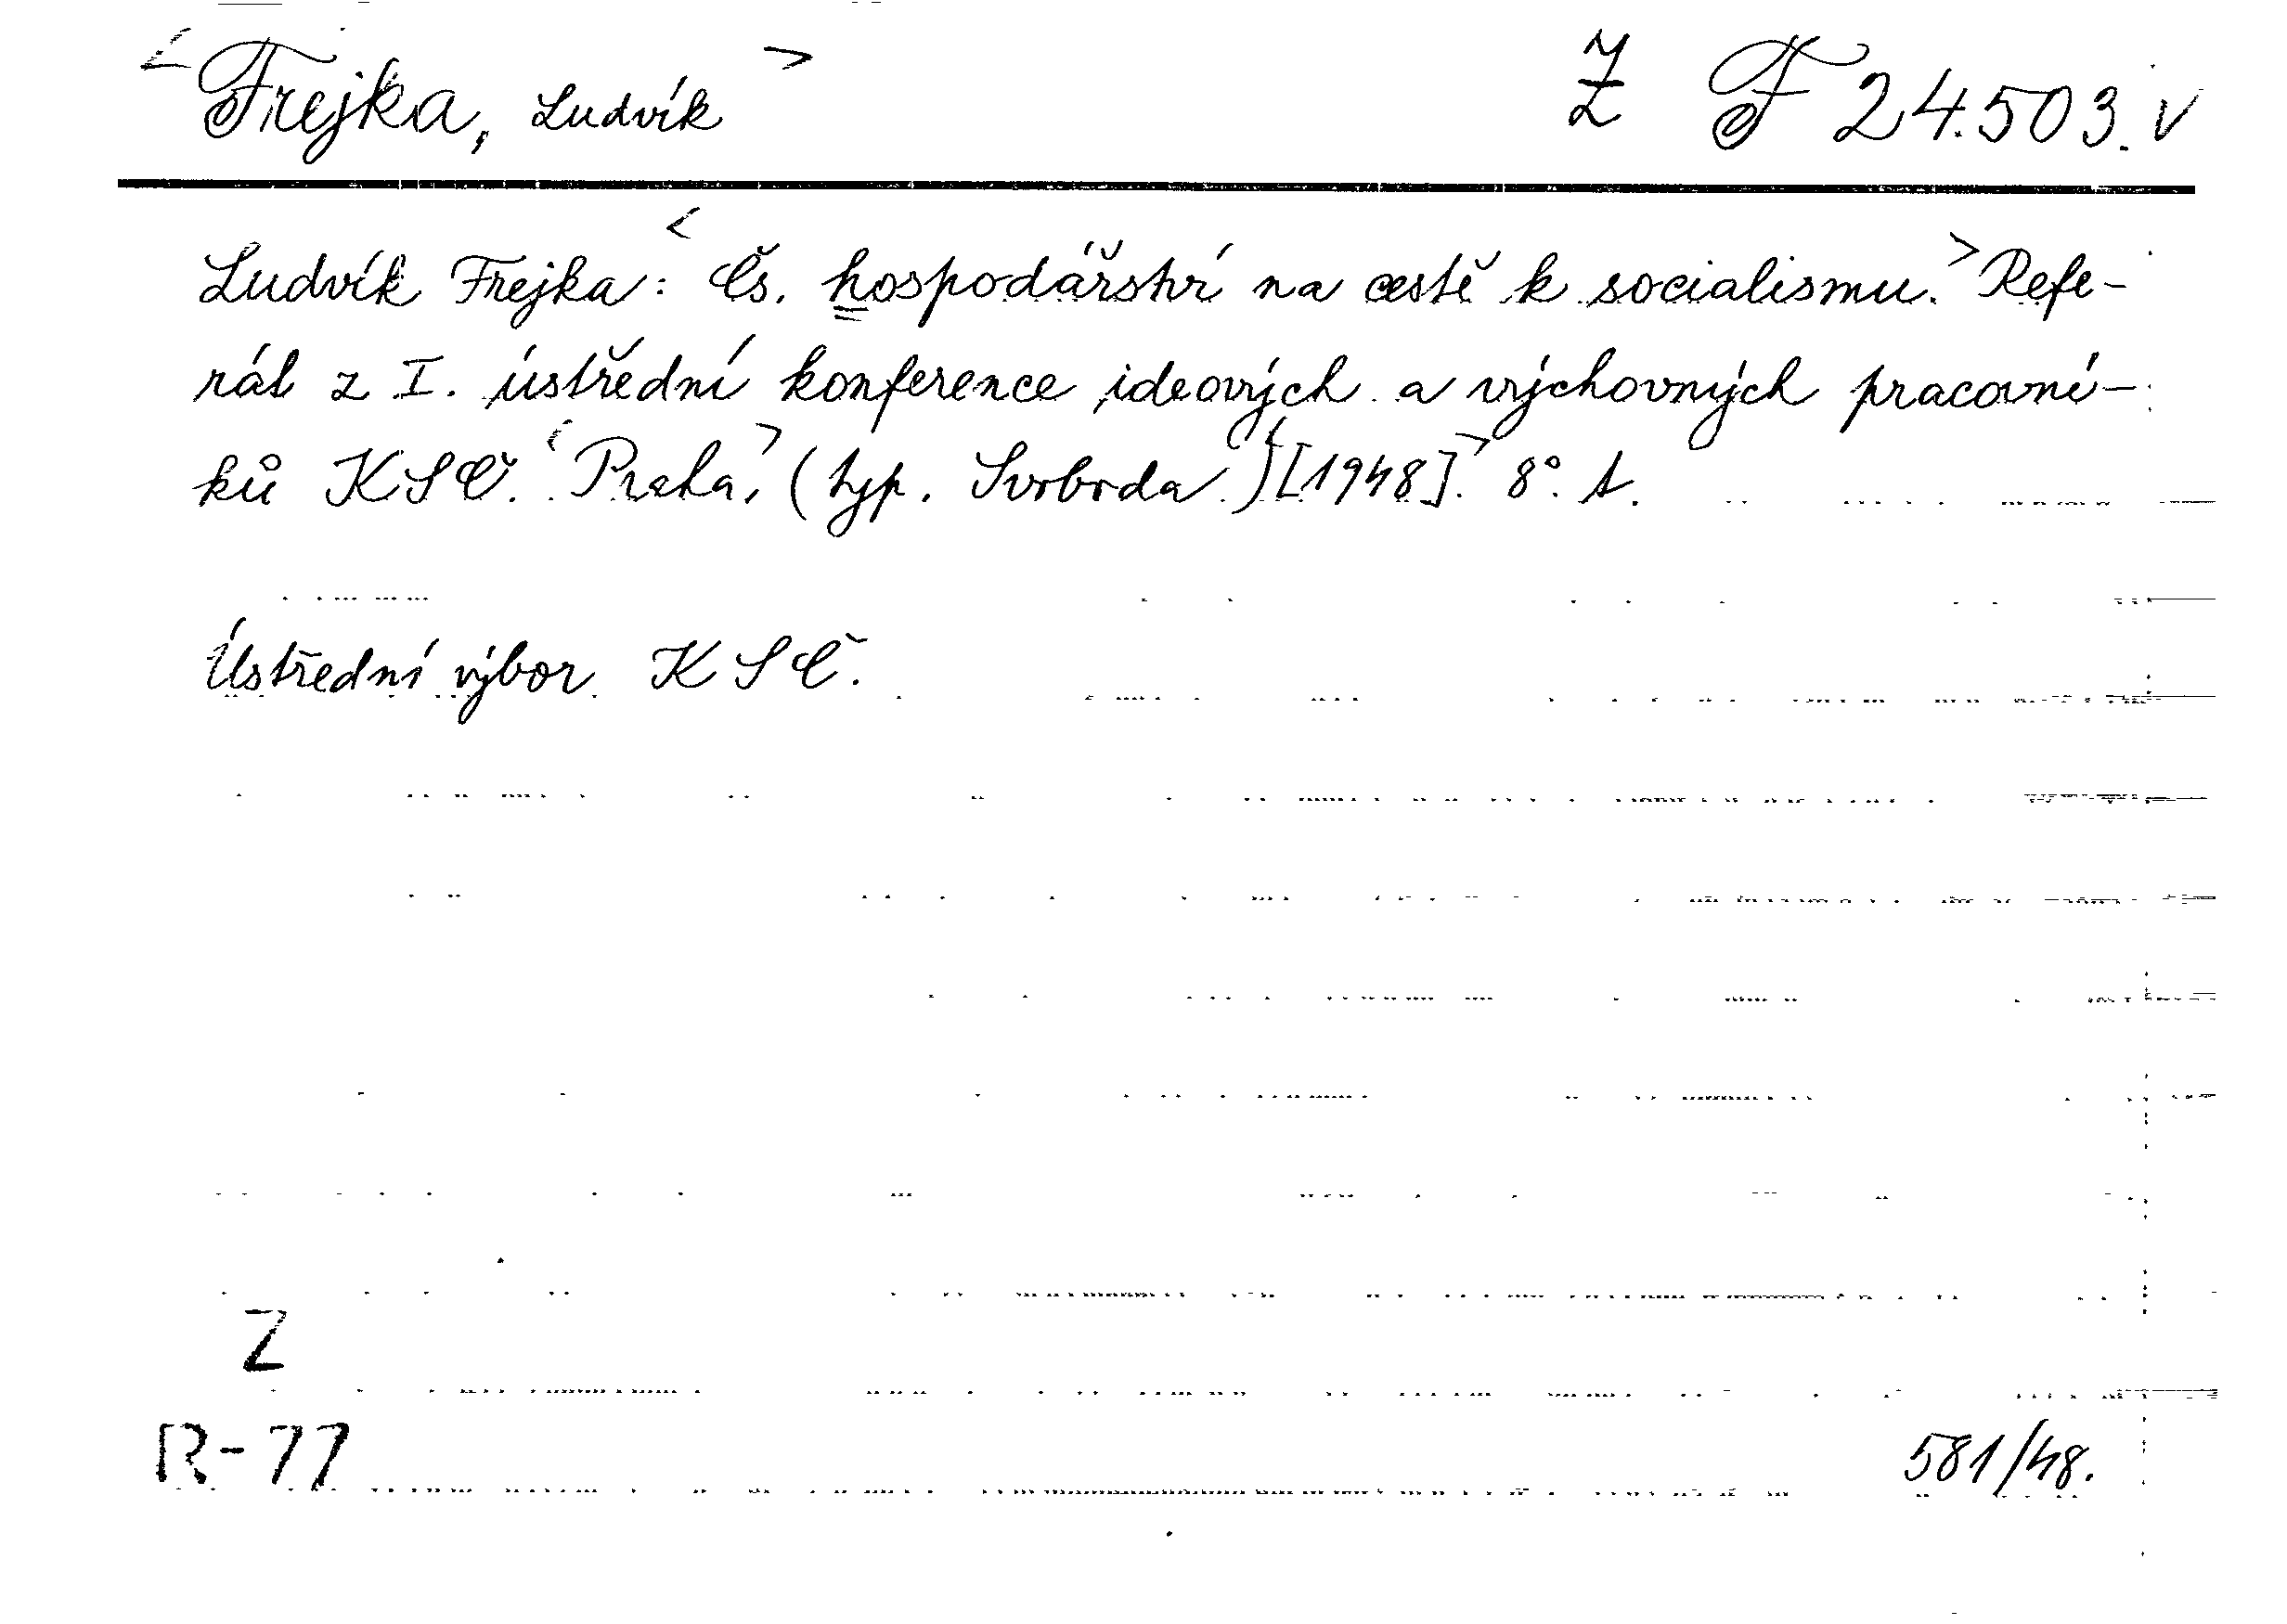 <Frejka, Ludvík> Z F 24.503.v
Ludvík Frejka: <Čs. hospodářství na cestě k socialismu.> Refe-
rát z I. ústřední konference ideových a výchovných pracovní-
ků KSČ. <Praha,> (typ. Svoboda.) <[1948].> 8°. 1.
Ústřední výbor KSČ.
Z
R-77
581/48.